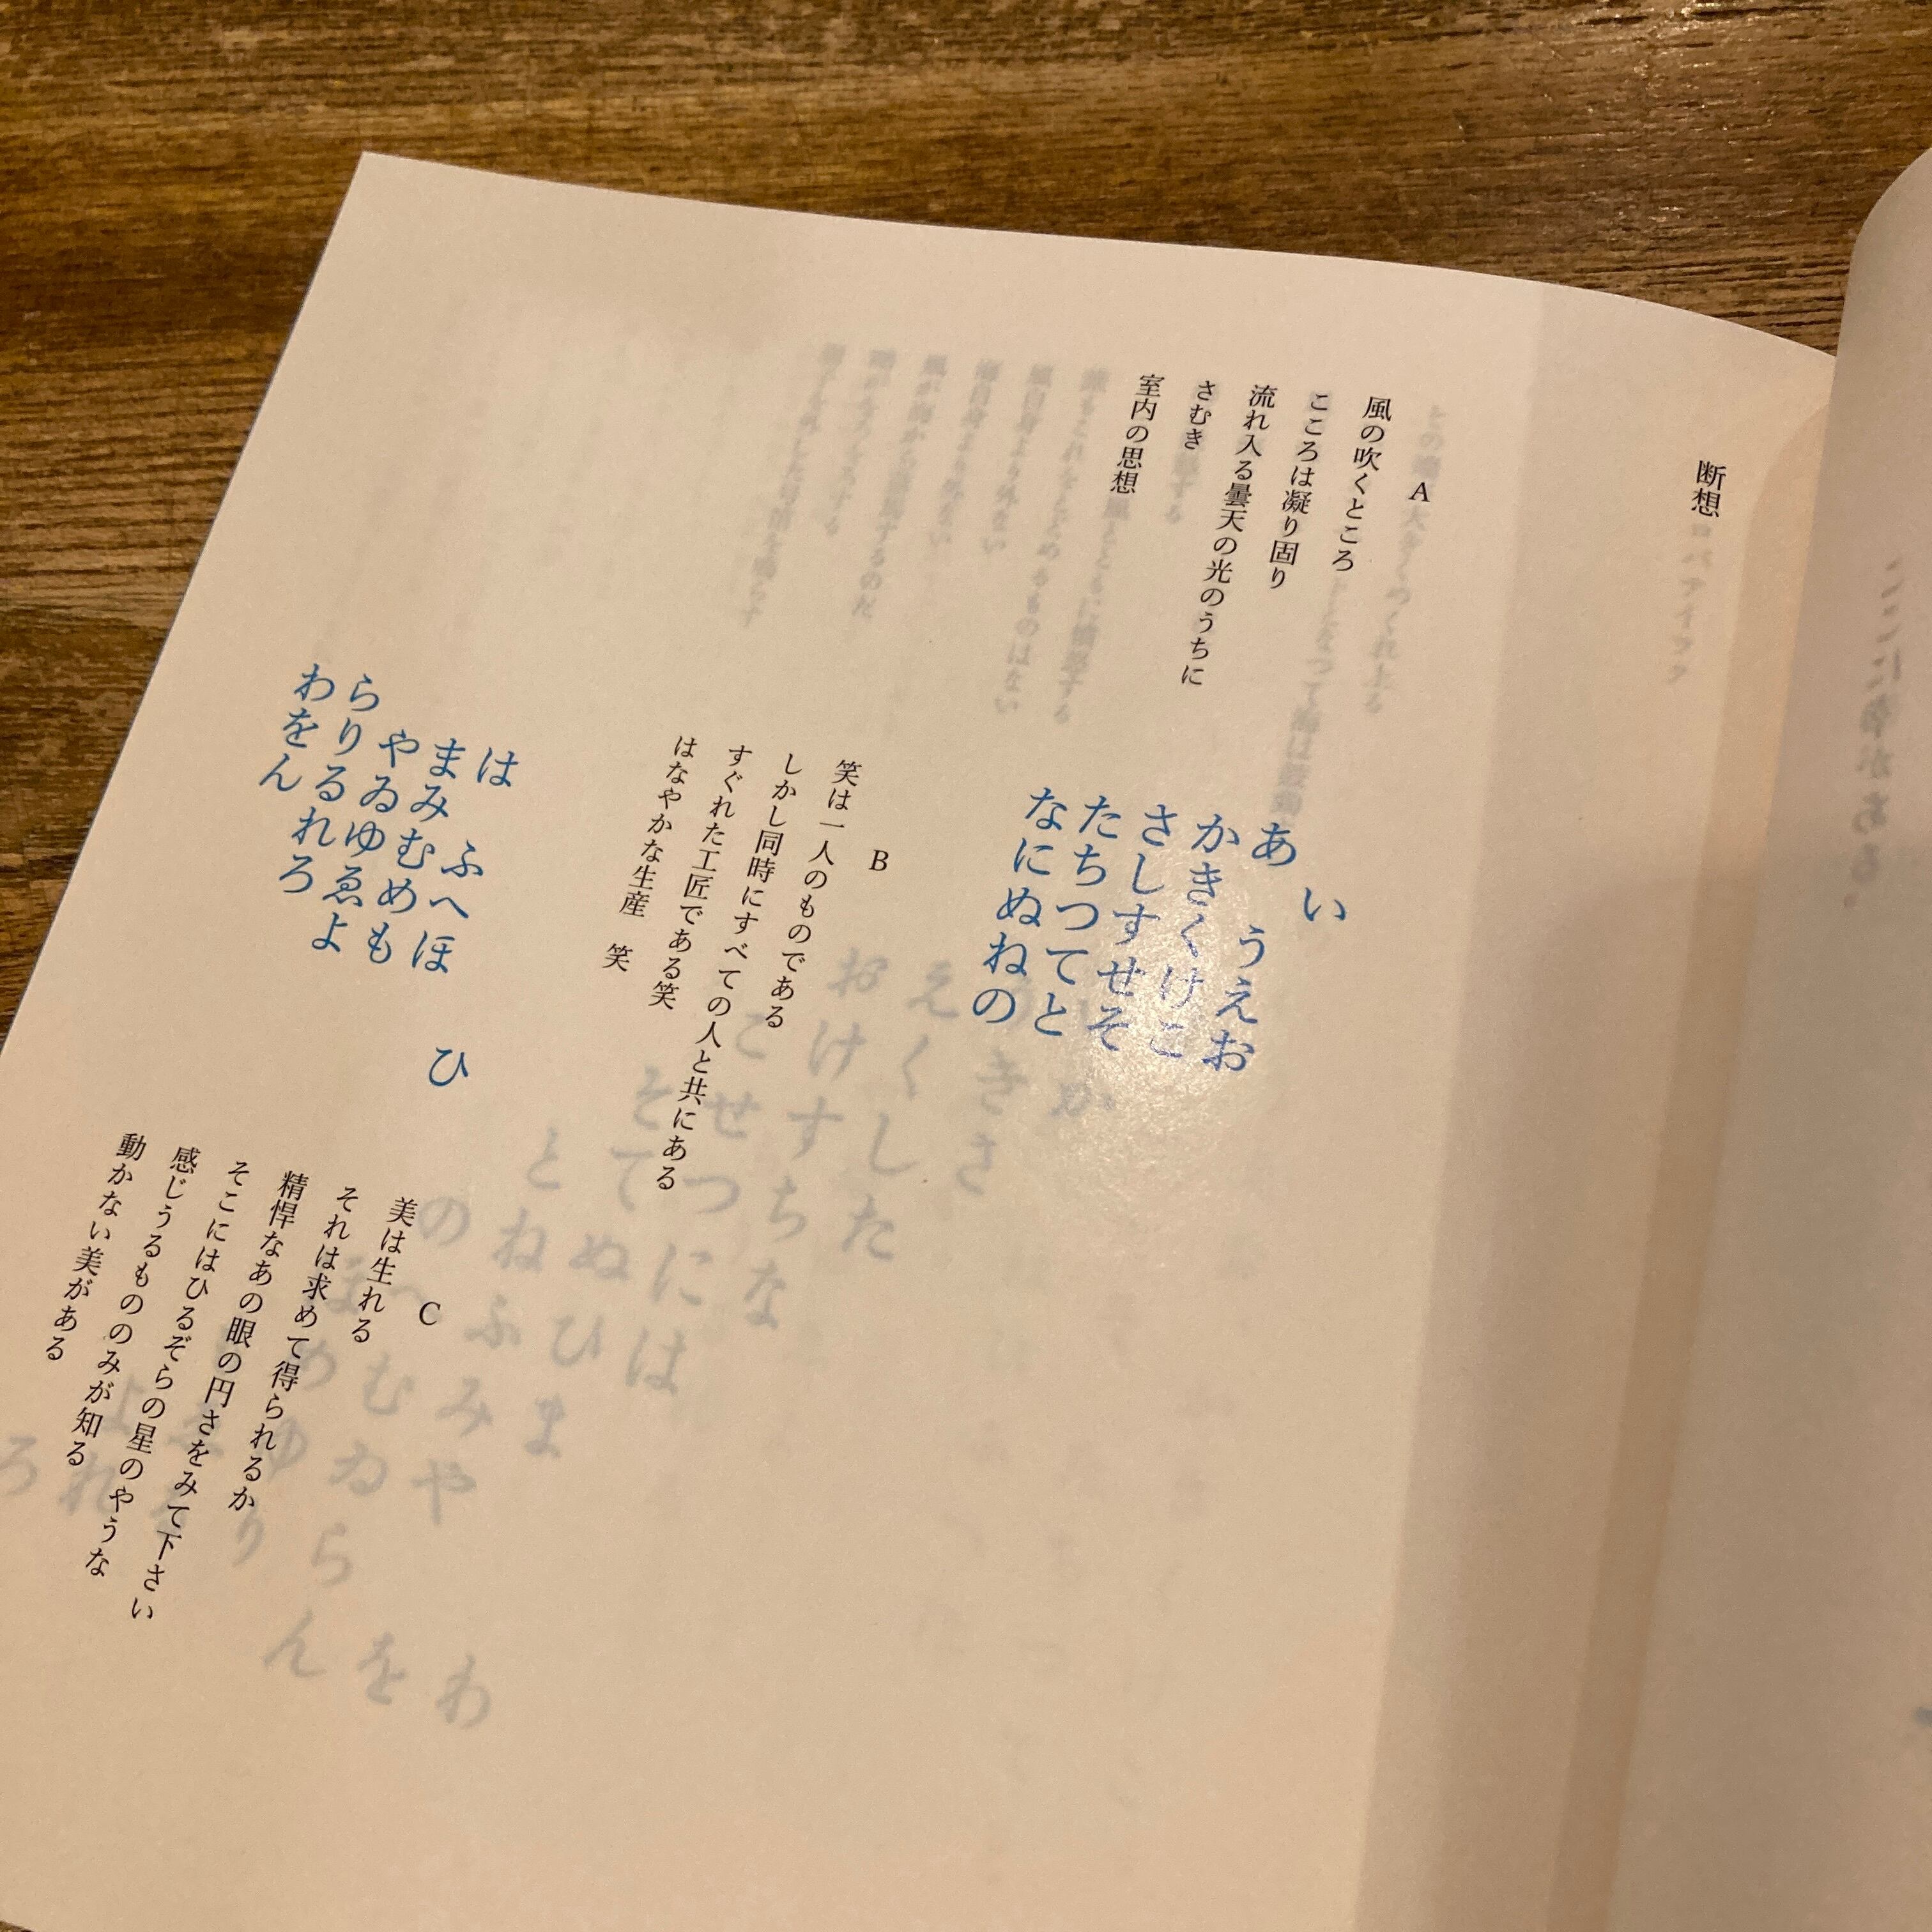 断想
A
風の吹くところ
こころは凝り固り
流れ入る曇天の光のうちに
さむき
室内の思想
い
あ　うえお
かきくけこ
さしすせそ
たちつてと
なにぬねの
B
笑は一人のものである
しかし同時にすべての人と共にある
すぐれた工匠である笑
はなやかな生産　笑
は　ふへほ　ひ
まみむめも
やゐゆゑよ
らりるれろ
わをん
C
美は生れる
それは求めて得られるか
精悍なあの眼の円さをみて下さい
そこにはひるぞらの星のやうな
感じうるもののみが知る
動かない美がある